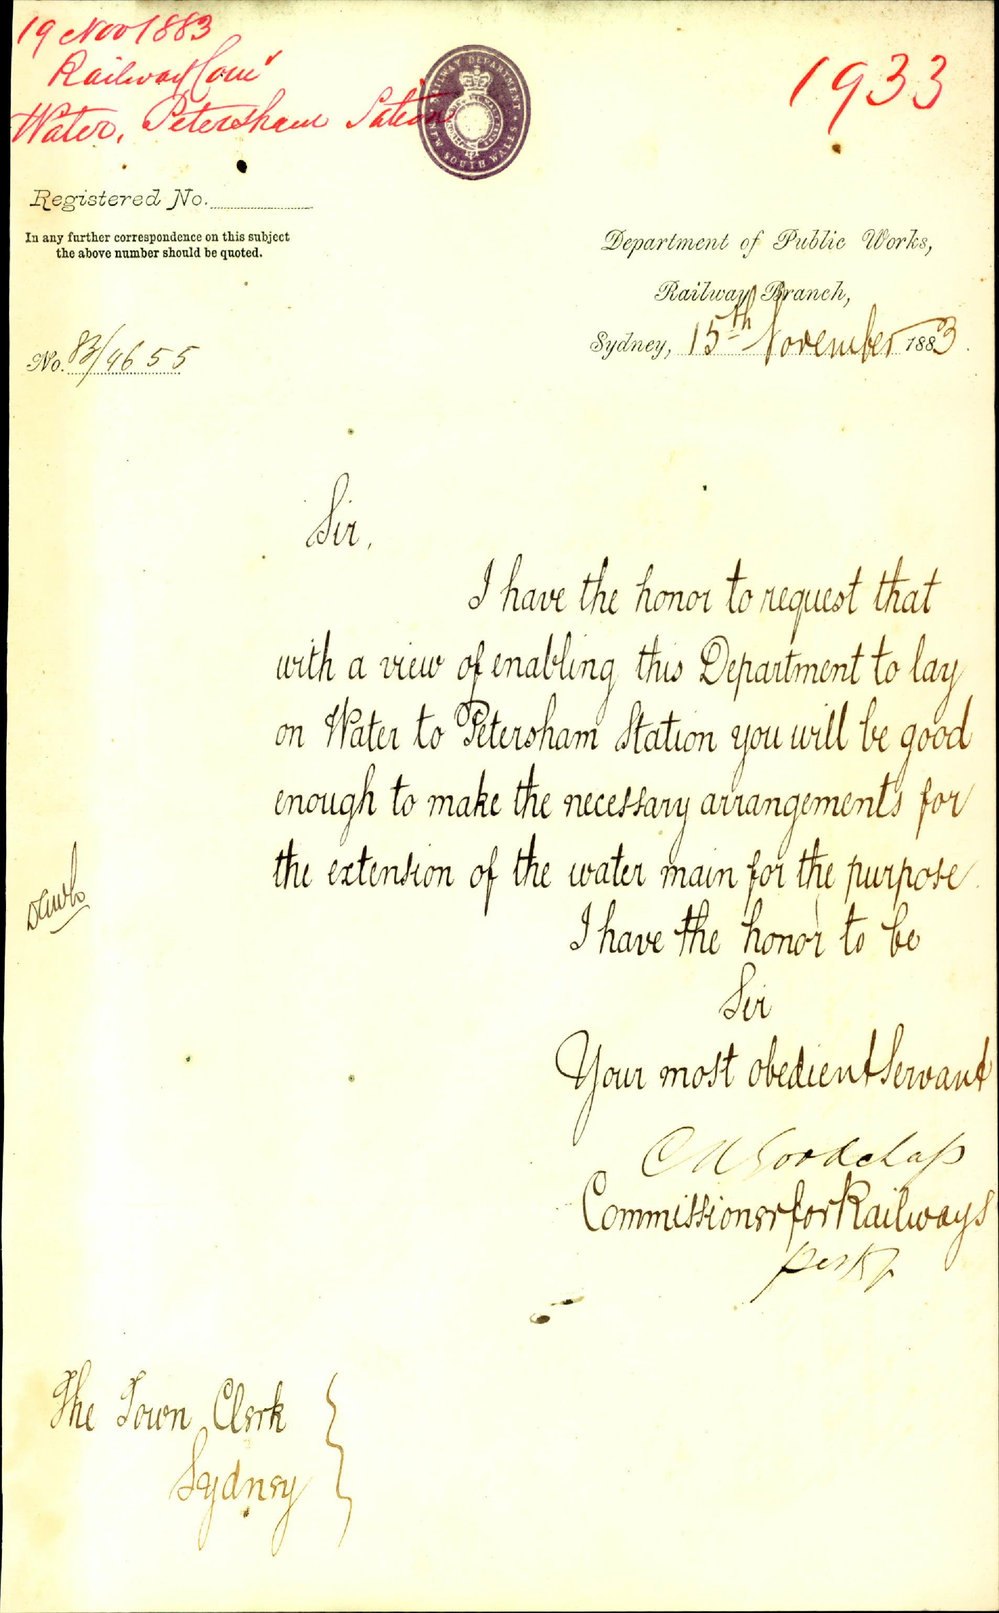 19 Nov 1883
Railway Com'
Water, Petersham Sation
1933
RAILWAY DEPARTMENT
NEW SOUTH WALES
Registered No.
In any further correspondence on this subject
the above number should be quoted.
Department of Public Works,
Railway Branch,
Sydney, 15th November 1883.
No. 83/4655
Sir,
I have the honor to request that
with a view of enabling this Department to lay
on Water to Petersham Station you will be good
enough to make the necessary arrangements for
the extension of the water main for the purpose.
I have the honor to be
Sir
Your most obedient Servant
Goodchap
Commissioner for Railways
The Town Clerk
Sydney